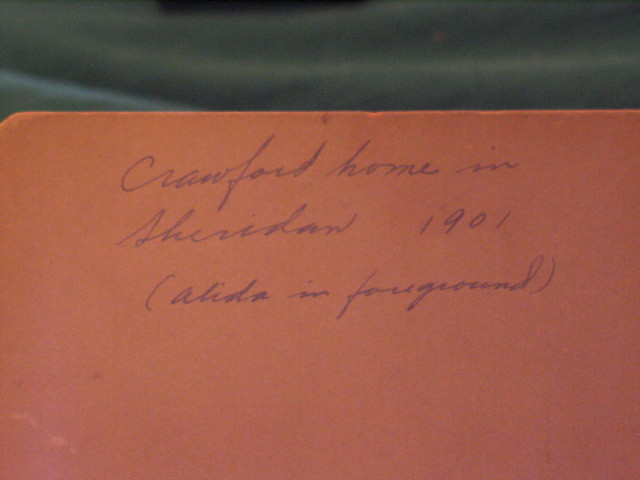 Crawford home in
Sheridan 1901
(Alida in foreground)